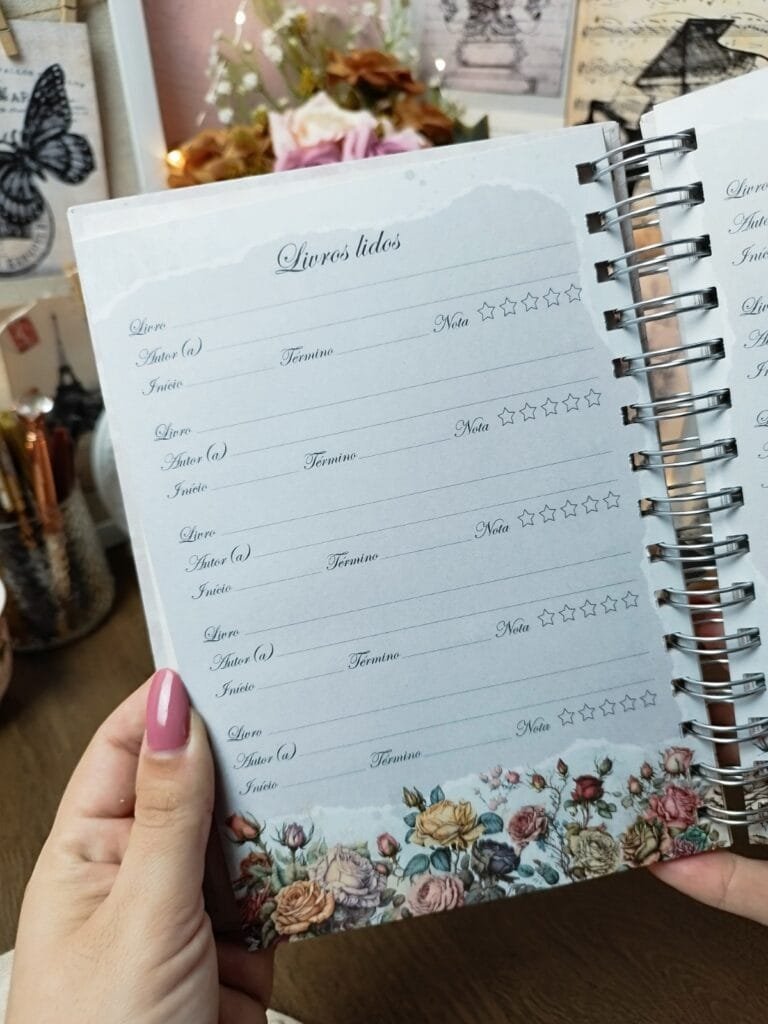 Livros lidos
Livro
Autor(a)
Início Término Nota
Livro
Autor(a)
Início Término Nota
Livro
Autor(a)
Início Término Nota
Livro
Autor(a)
Início Término Nota
Livro
Autor(a)
Início Término Nota
Livro